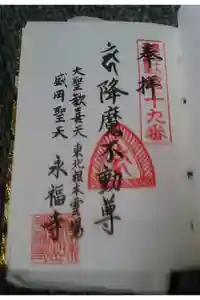 奉拝
降魔不動尊
大聖歓喜天 東北根本霊場
盛岡聖天 永福寺